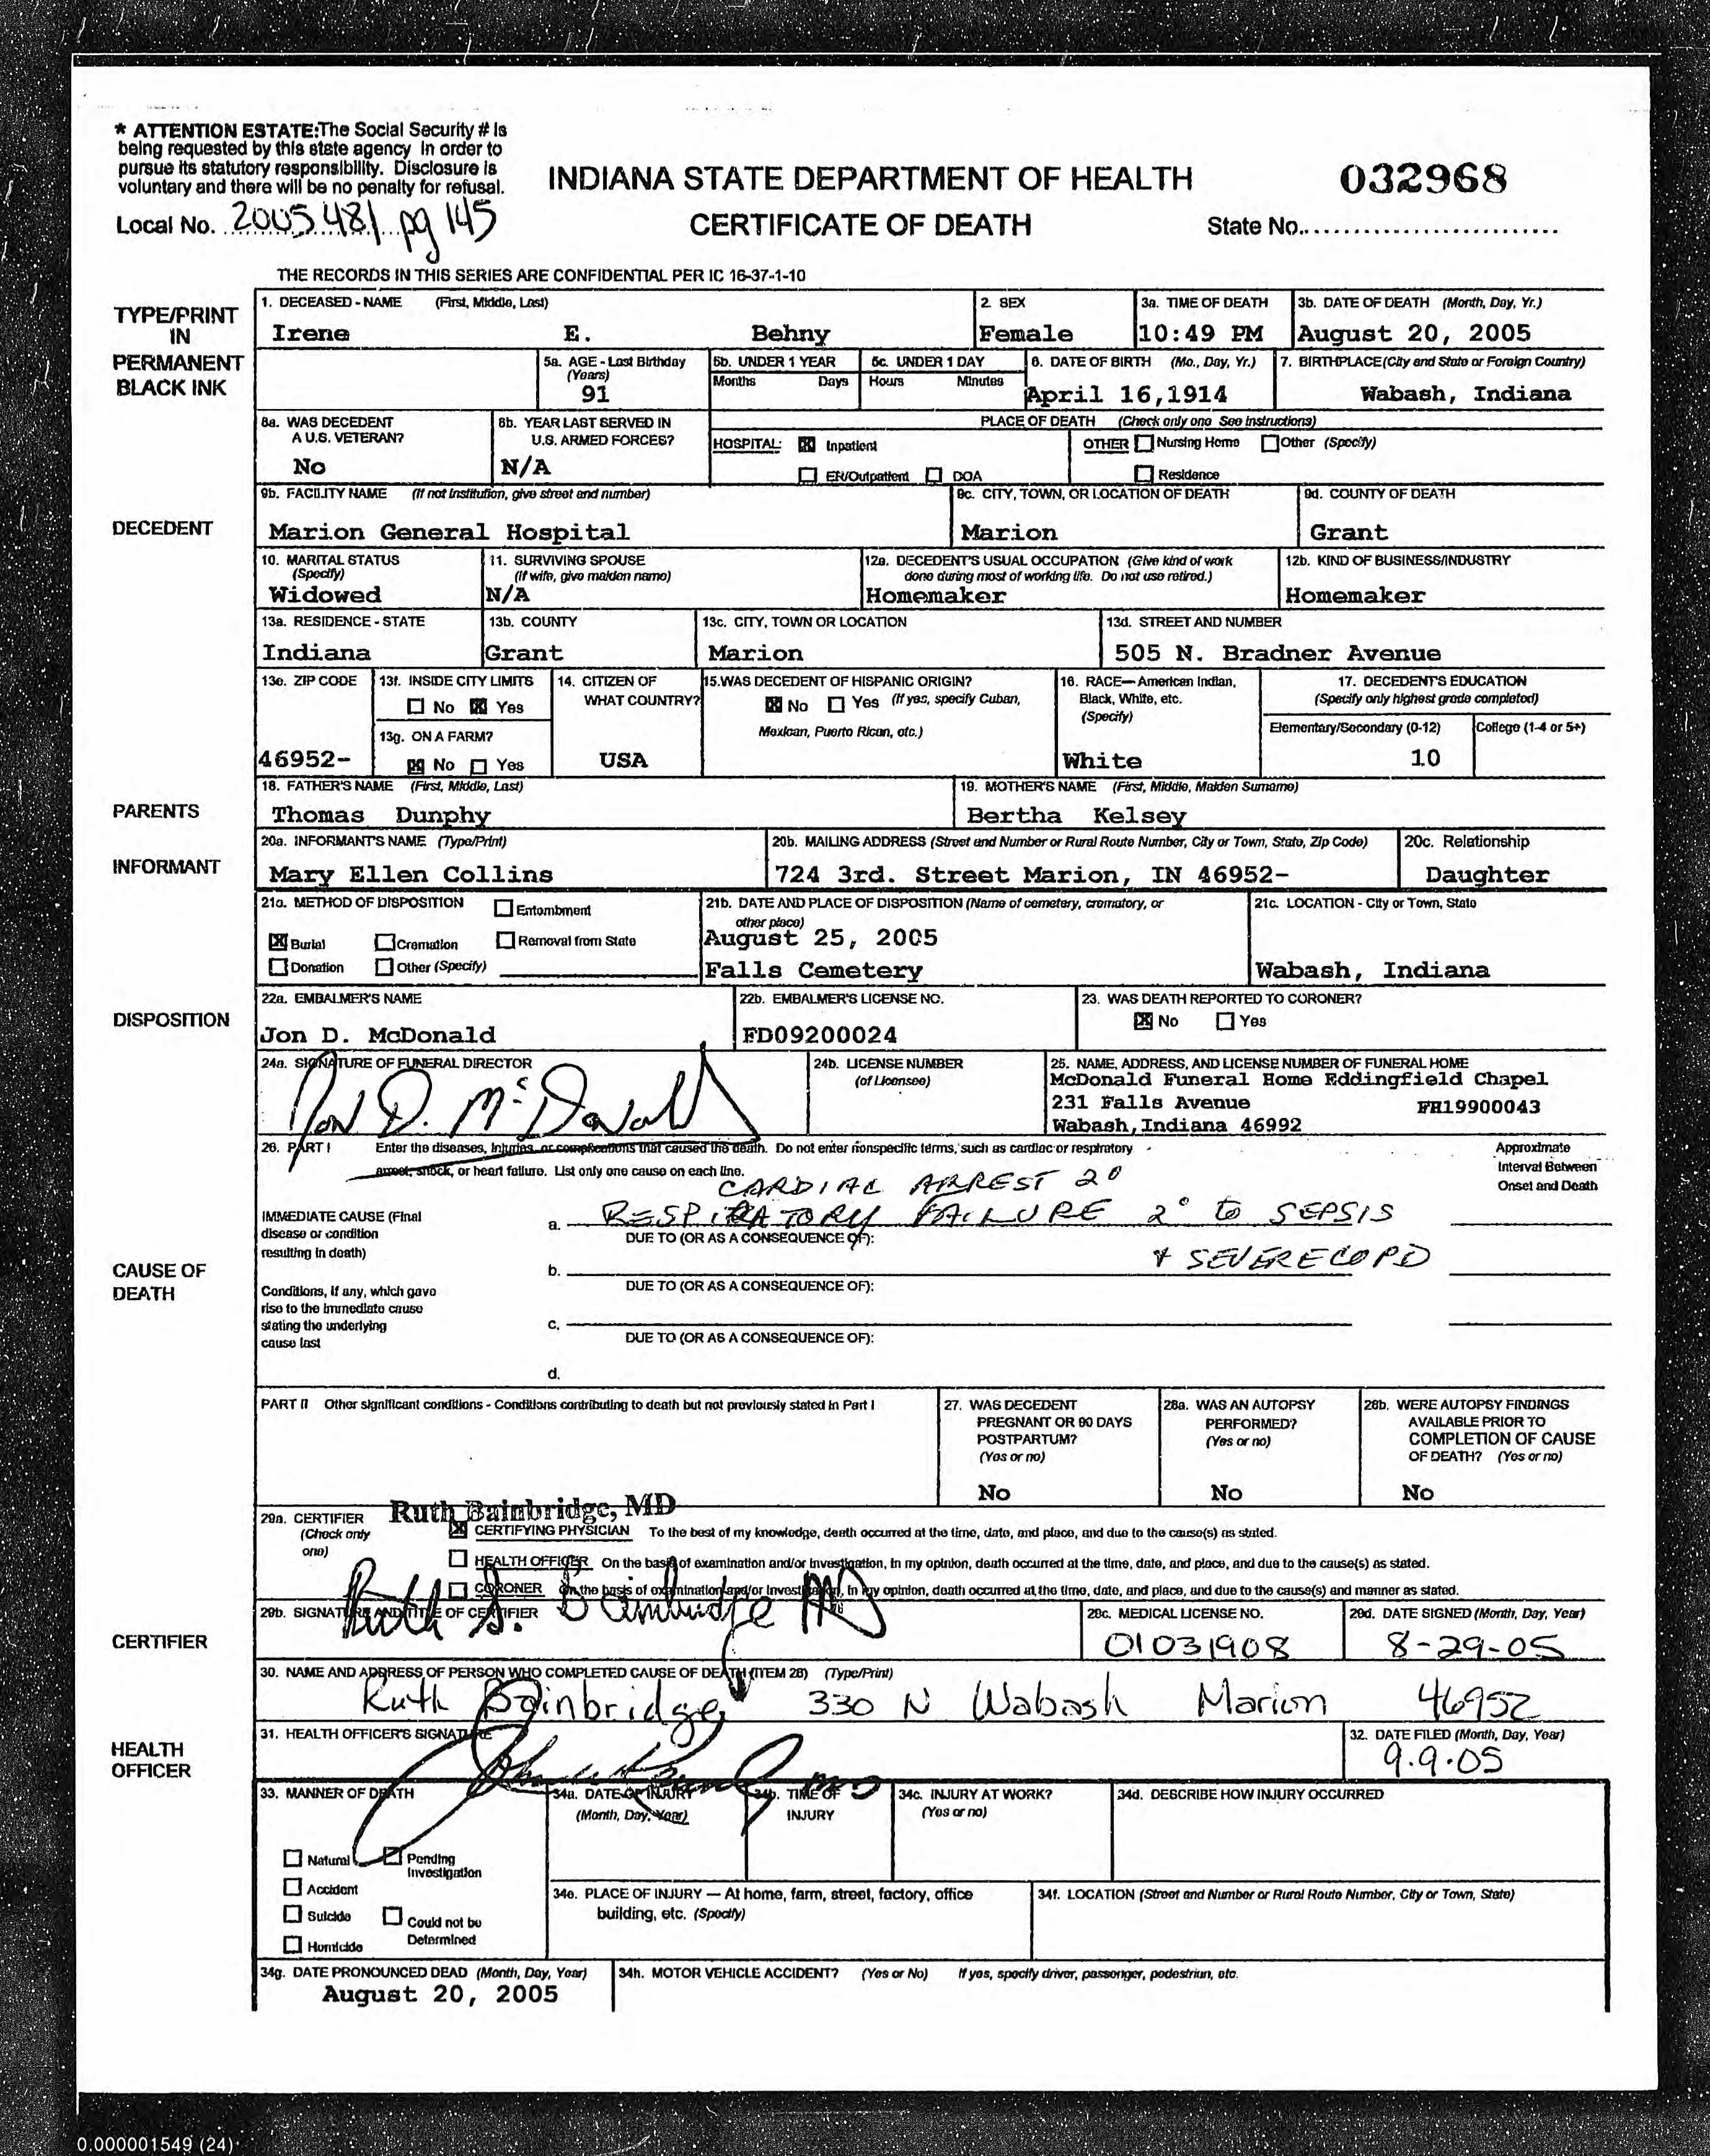 * ATTENTION ESTATE:The Social Security # is
being requested by this state agency in order to
pursue its statutory responsibility. Disclosure is
voluntary and there will be no penalty for refusal.
Local No. 2005 481 pg 145
INDIANA STATE DEPARTMENT OF HEALTH
CERTIFICATE OF DEATH
032968
State No.
THE RECORDS IN THIS SERIES ARE CONFIDENTIAL PER IC 16-37-1-10
TYPE/PRINT
IN
PERMANENT
BLACK INK
1. DECEASED - NAME (First, Middle, Last)
Irene E. Behny
2. SEX
Female
3a. TIME OF DEATH
10:49 PM
3b. DATE OF DEATH (Month, Day, Yr.)
August 20, 2005
5a. AGE - Last Birthday
(Years)
91
5b. UNDER 1 YEAR
Months Days
5c. UNDER 1 DAY
Hours Minutes
6. DATE OF BIRTH (Mo., Day, Yr.)
April 16,1914
7. BIRTHPLACE(City and State or Foreign Country)
Wabash, Indiana
8a. WAS DECEDENT
A U.S. VETERAN?
No
8b. YEAR LAST SERVED IN
U.S. ARMED FORCES?
N/A
PLACE OF DEATH (Check only one See instructions)
HOSPITAL: Inpatient
ER/Outpatient DOA
OTHER Nursing Home Other (Specify)
Residence
DECEDENT
9b. FACILITY NAME (If not institution, give street and number)
Marion General Hospital
9c. CITY, TOWN, OR LOCATION OF DEATH
Marion
9d. COUNTY OF DEATH
Grant
10. MARITAL STATUS
(Specify)
Widowed
11. SURVIVING SPOUSE
(If wife, give maiden name)
N/A
12a. DECEDENT'S USUAL OCCUPATION (Give kind of work
done during most of working life. Do not use retired.)
Homemaker
12b. KIND OF BUSINESS/INDUSTRY
Homemaker
13a. RESIDENCE - STATE
Indiana
13b. COUNTY
Grant
13c. CITY, TOWN OR LOCATION
Marion
13d. STREET AND NUMBER
505 N. Bradner Avenue
13e. ZIP CODE
46952-
13f. INSIDE CITY LIMITS
No Yes
13g. ON A FARM?
No Yes
14. CITIZEN OF
WHAT COUNTRY?
USA
15.WAS DECEDENT OF HISPANIC ORIGIN?
No Yes (If yes, specify Cuban,
Mexican, Puerto Rican, etc.)
16. RACE— American Indian,
Black, White, etc.
(Specify)
White
17. DECEDENT'S EDUCATION
(Specify only highest grade completed)
Elementary/Secondary (0-12) College (1-4 or 5+)
10
PARENTS
18. FATHER'S NAME (First, Middle, Last)
Thomas Dunphy
19. MOTHER'S NAME (First, Middle, Maiden Surname)
Bertha Kelsey
INFORMANT
20a. INFORMANT'S NAME (Type/Print)
Mary Ellen Collins
20b. MAILING ADDRESS (Street and Number or Rural Route Number, City or Town, State, Zip Code)
724 3rd. Street Marion, IN 46952-
20c. Relationship
Daughter
21a. METHOD OF DISPOSITION Entombment
Burial Cremation Removal from State
Donation Other (Specify)
21b. DATE AND PLACE OF DISPOSITION (Name of cemetery, crematory, or
other place)
August 25, 2005
Falls Cemetery
21c. LOCATION - City or Town, State
Wabash, Indiana
DISPOSITION
22a. EMBALMER'S NAME
Jon D. McDonald
22b. EMBALMER'S LICENSE NO.
FD09200024
23. WAS DEATH REPORTED TO CORONER?
No Yes
24a. SIGNATURE OF FUNERAL DIRECTOR
Jon D. McDonald
24b. LICENSE NUMBER
(of Licensee)
25. NAME, ADDRESS, AND LICENSE NUMBER OF FUNERAL HOME
McDonald Funeral Home Eddingfield Chapel
231 Falls Avenue FH19900043
Wabash,Indiana 46992
26. PART I Enter the diseases, injuries, or complications that caused the death. Do not enter nonspecific terms, such as cardiac or respiratory
arrest, shock, or heart failure. List only one cause on each line.
Approximate
Interval Between
Onset and Death
CARDIAC ARREST 2°
IMMEDIATE CAUSE (Final
disease or condition
resulting in death)
a. RESPIRATORY FAILURE 2° to SEPSIS
DUE TO (OR AS A CONSEQUENCE OF):
+ SEVERE COPD
CAUSE OF
DEATH
b.
DUE TO (OR AS A CONSEQUENCE OF):
Conditions, if any, which gave
rise to the immediate cause
stating the underlying
cause last
c.
DUE TO (OR AS A CONSEQUENCE OF):
d.
PART II Other significant conditions - Conditions contributing to death but not previously stated in Part I
27. WAS DECEDENT
PREGNANT OR 90 DAYS
POSTPARTUM?
(Yes or no)
No
28a. WAS AN AUTOPSY
PERFORMED?
(Yes or no)
No
28b. WERE AUTOPSY FINDINGS
AVAILABLE PRIOR TO
COMPLETION OF CAUSE
OF DEATH? (Yes or no)
No
Ruth Bainbridge, MD
29a. CERTIFIER
(Check only
one)
CERTIFYING PHYSICIAN To the best of my knowledge, death occurred at the time, date, and place, and due to the cause(s) as stated.
HEALTH OFFICER On the basis of examination and/or investigation, in my opinion, death occurred at the time, date, and place, and due to the cause(s) as stated.
CORONER On the basis of examination and/or investigation, in my opinion, death occurred at the time, date, and place, and due to the cause(s) and manner as stated.
CERTIFIER
29b. SIGNATURE AND TITLE OF CERTIFIER
Ruth S. Bainbridge MD
29c. MEDICAL LICENSE NO.
01031908
29d. DATE SIGNED (Month, Day, Year)
8-29-05
30. NAME AND ADDRESS OF PERSON WHO COMPLETED CAUSE OF DEATH (ITEM 26) (Type/Print)
Ruth Bainbridge 330 N Wabash Marion 46952
HEALTH
OFFICER
31. HEALTH OFFICER'S SIGNATURE
32. DATE FILED (Month, Day, Year)
9.9.05
33. MANNER OF DEATH
Natural Pending
Investigation
Accident
Suicide Could not be
Determined
Homicide
34a. DATE OF INJURY
(Month, Day, Year)
34b. TIME OF
INJURY
34c. INJURY AT WORK?
(Yes or no)
34d. DESCRIBE HOW INJURY OCCURRED
34e. PLACE OF INJURY — At home, farm, street, factory, office
building, etc. (Specify)
34f. LOCATION (Street and Number or Rural Route Number, City or Town, State)
34g. DATE PRONOUNCED DEAD (Month, Day, Year)
August 20, 2005
34h. MOTOR VEHICLE ACCIDENT? (Yes or No) If yes, specify driver, passenger, pedestrian, etc.
0.000001549 (24)